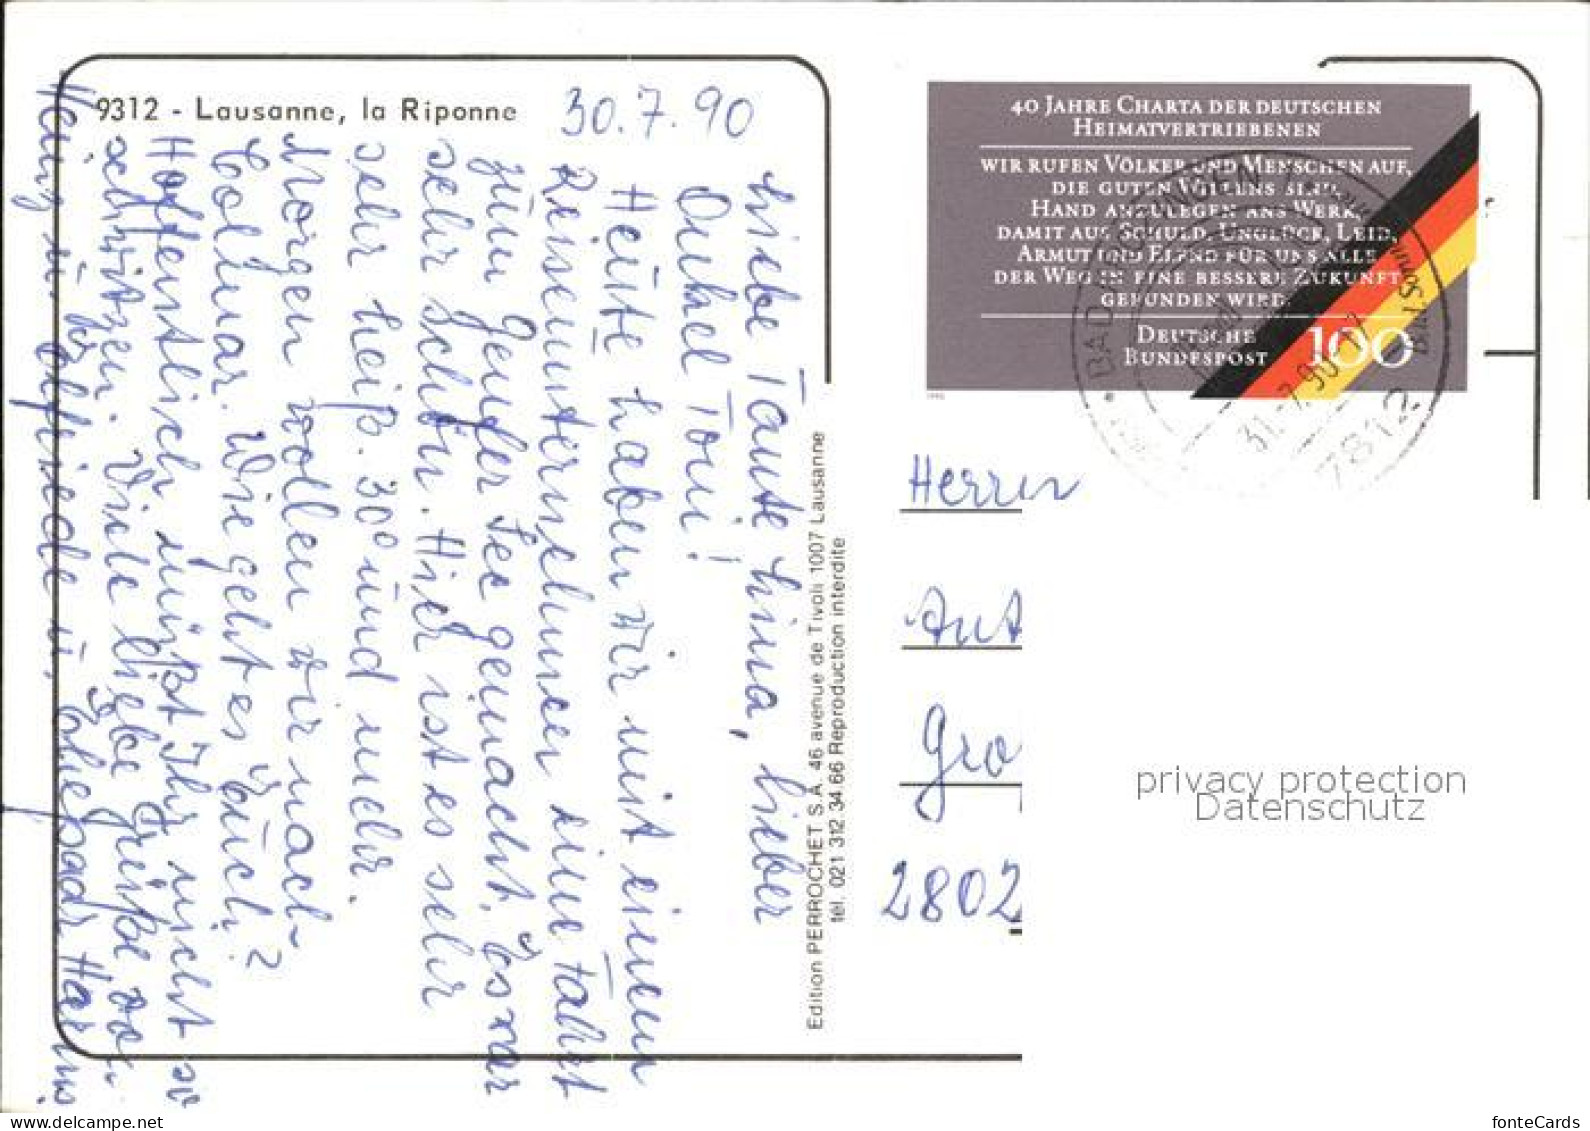 9312 - Lausanne, la Riponne
30.7.90
Liebe Tante Lina, lieber
Onkel Toni!
Heute haben wir mit einem
Reiseunternehmen eine Fahrt
zum Genfer See gemacht. Es war
sehr schön. Hier ist es sehr
sehr heiß. 30° und mehr.
Morgen wollen wir nach
Colmar. Wie geht es Euch?
Hoffentlich müßt Ihr nicht so
schwitzen. Viele liebe Grüße von
Heinz u. Elfriede u.
Edition PERROCHET S.A. 46 avenue de Tivoli 1007 Lausanne
tél. 021 312 34 66 Reproduction interdite
40 JAHRE CHARTA DER DEUTSCHEN
HEIMATVERTRIEBENEN
WIR RUFEN VÖLKER UND MENSCHEN AUF,
DIE GUTEN WILLENS SIND,
HAND ANZULEGEN ANS WERK,
DAMIT AUS SCHULD, UNGLÜCK, LEID,
ARMUT UND ELEND FÜR UNS ALLE
DER WEG IN EINE BESSERE ZUKUNFT
GEFUNDEN WIRD.
DEUTSCHE
BUNDESPOST
100
31.-7.90-17
7812
Herrn
Ant
Gro
2802
privacy protection
Datenschutz
www.ansichtskarten-center.de
fonteCards